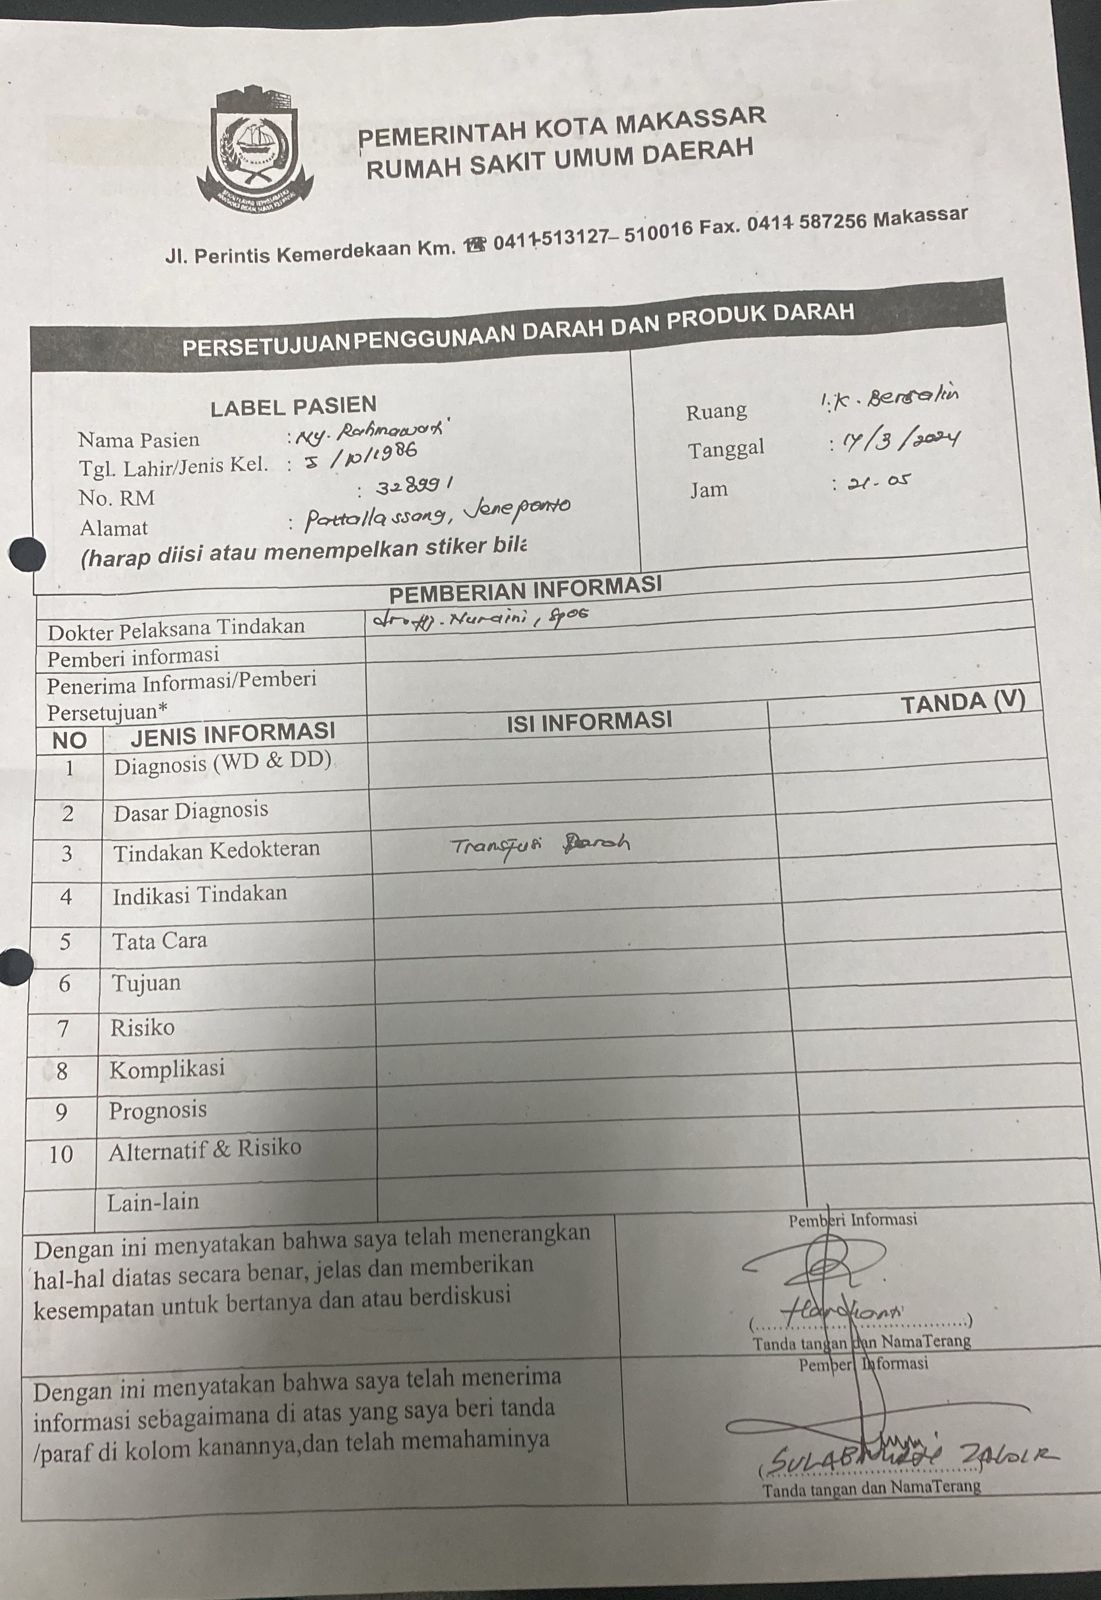 PEMERINTAH KOTA MAKASSAR
RUMAH SAKIT UMUM DAERAH
Jl. Perintis Kemerdekaan Km. ☎ 0411-513127– 510016 Fax. 0411 587256 Makassar
PERSETUJUAN PENGGUNAAN DARAH DAN PRODUK DARAH
LABEL PASIEN
Nama Pasien : Ny. Rahmawati
Tgl. Lahir/Jenis Kel. : 5 /10/1986
No. RM : 328991
Alamat : Pattallassang, Jeneponto
(harap diisi atau menempelkan stiker bila
Ruang : I.K. Bersalin
Tanggal : 14/3/2024
Jam : 21.05
PEMBERIAN INFORMASI
Dokter Pelaksana Tindakan dr. Hj. Nuraini, SpOG
Pemberi informasi
Penerima Informasi/Pemberi
Persetujuan*
NO JENIS INFORMASI ISI INFORMASI TANDA (V)
1 Diagnosis (WD & DD)
2 Dasar Diagnosis
3 Tindakan Kedokteran Transfusi Darah
4 Indikasi Tindakan
5 Tata Cara
6 Tujuan
7 Risiko
8 Komplikasi
9 Prognosis
10 Alternatif & Risiko
Lain-lain
Dengan ini menyatakan bahwa saya telah menerangkan
hal-hal diatas secara benar, jelas dan memberikan
kesempatan untuk bertanya dan atau berdiskusi
Pemberi Informasi
(Hardianti)
Tanda tangan dan NamaTerang
Dengan ini menyatakan bahwa saya telah menerima
informasi sebagaimana di atas yang saya beri tanda
/paraf di kolom kanannya,dan telah memahaminya
Pemberi Informasi
Tanda tangan dan NamaTerang